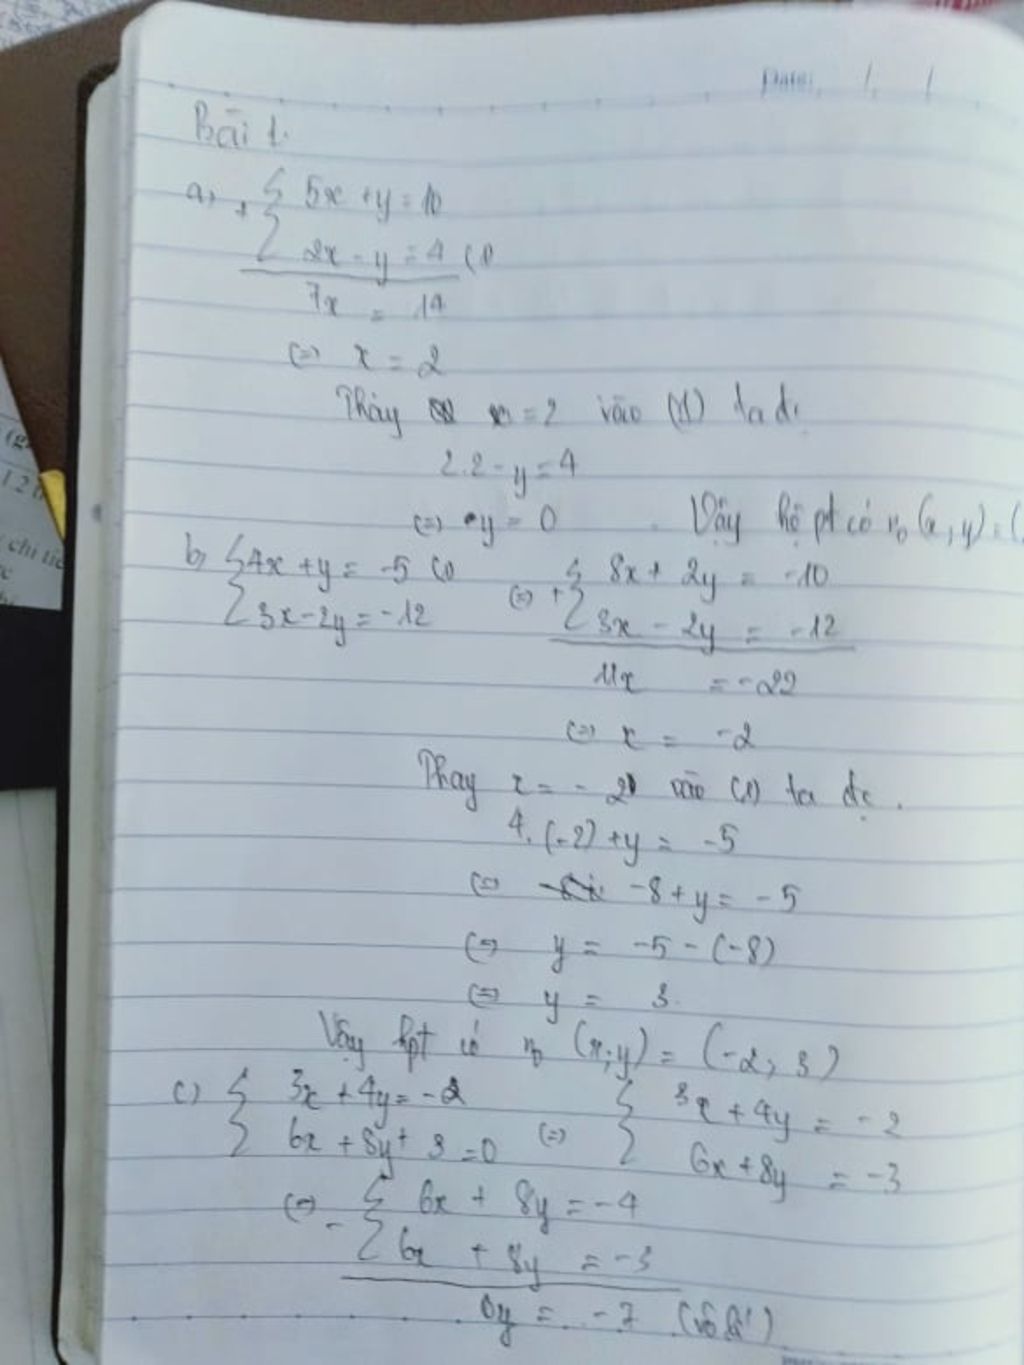 Date: / /
Bài 1.
a) + { 5x + y = 10
2x - y = 4 (1)
7x = 14
(=) x = 2
Thay x = 2 vào (1) ta đ
2.2 - y = 4
(=) y = 0 . Vậy hệ pt có n₀ (x, y) = (
b) { 4x + y = -5 (1) (=) + { 8x + 2y = -10
3x - 2y = -12 3x - 2y = -12
11x = -22
(=) x = -2
Thay x = -2 vào (1) ta đc.
4. (-2) + y = -5
(=) -8 + y = -5
(=) y = -5 - (-8)
(=) y = 3.
Vậy hpt có n₀ (x; y) = (-2, 3)
c) { 3x + 4y = -2 (=) { 3x + 4y = -2
6x + 8y + 3 = 0 6x + 8y = -3
(=) - { 6x + 8y = -4
6x + 8y = -3
0y = -7 (vô lí)